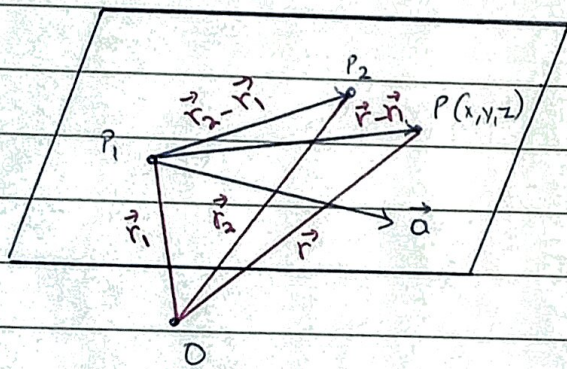 P₂
r⃗₂ - r⃗₁
r⃗ - r⃗₁
P(x,y,z)
P₁
r⃗₁
r⃗₂
r⃗
a⃗
O